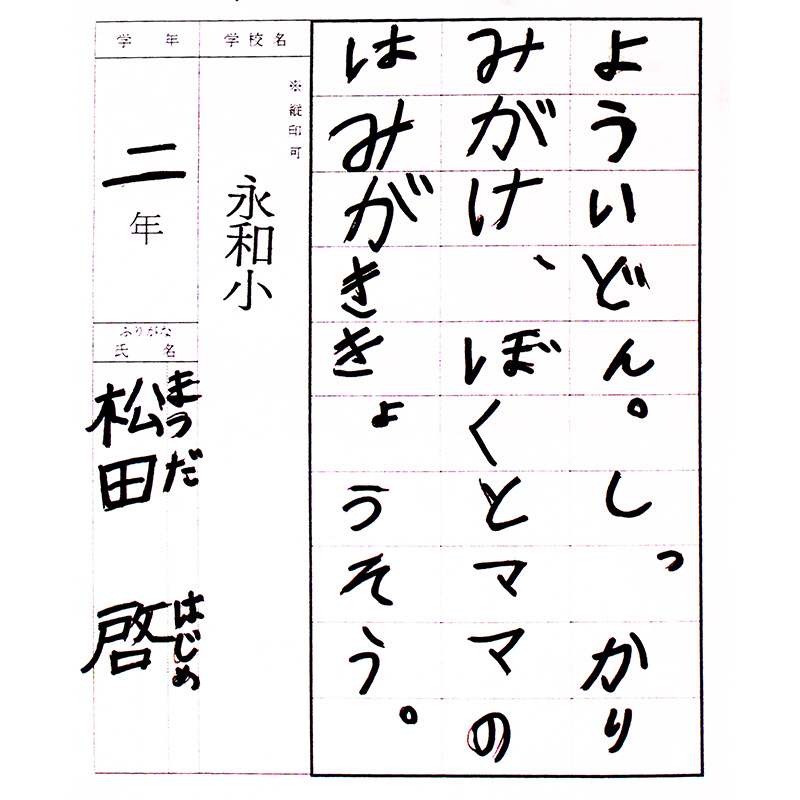 よういどん。しっかり
みがけ、ぼくとママの
はみがききょうそう。
学校名
※縦印可
永和小
学年
二年
ふりがな
氏名
まつだ はじめ
松田 啓